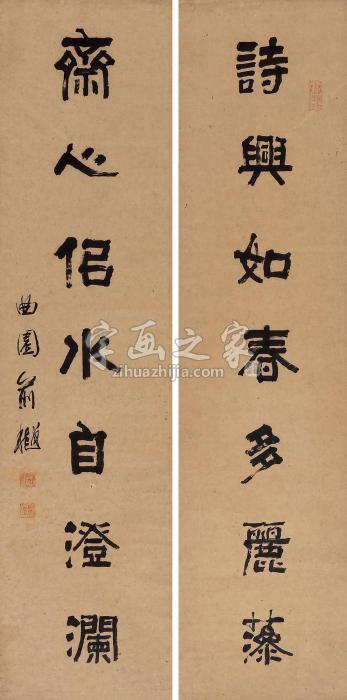 詩興如春多麗藻
齋心侣水自澄瀾
曲園俞樾
字画之家
zihuazhijia.com